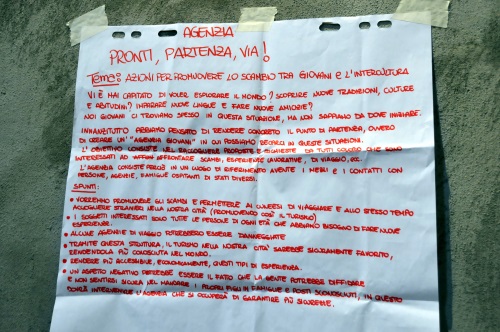 AGENZIA
PRONTI, PARTENZA, VIA!
Tema: AZIONI PER PROMUOVERE LO SCAMBIO TRA GIOVANI E L'INTERCULTURA
VI È MAI CAPITATO DI VOLER ESPLORARE IL MONDO? SCOPRIRE NUOVE TRADIZIONI, CULTURE
E ABITUDINI? IMPARARE NUOVE LINGUE E FARE NUOVE AMICIZIE?
NOI GIOVANI CI TROVIAMO SPESSO IN QUESTA SITUAZIONE, MA NON SAPPIAMO DA DOVE INIZIARE.
INNANZITUTTO ABBIAMO PENSATO DI RENDERE CONCRETO IL PUNTO DI PARTENZA, OVVERO
DI CREARE UN' "AGENZIA GIOVANI" IN CUI POSSIAMO RECARCI IN QUESTE SITUAZIONI.
L'OBIETTIVO CONSISTE NEL RACCOGLIERE PROPOSTE E RICHIESTE DA TUTTI COLORO CHE SONO
INTERESSATI AD AFFRONTARE SCAMBI, ESPERIENZE LAVORATIVE, DI VIAGGIO, ECC.
L'AGENZIA CONSISTE PERCIÒ IN UN LUOGO DI RIFERIMENTO AVENTE I MEZZI E I CONTATTI CON
PERSONE, AGENZIE, FAMIGLIE OSPITANTI DI STATI DIVERSI.
SPUNTI:
• VORREMMO PROMUOVERE GLI SCAMBI E PERMETTERE AI GIOVANI DI VIAGGIARE E ALLO STESSO TEMPO
ACCOGLIERE STRANIERI NELLA NOSTRA CITTÀ (PROMUOVENDO COSÌ IL TURISMO)
• I SOGGETTI INTERESSATI SONO TUTTE LE PERSONE DI OGNI ETÀ CHE ABBIANO BISOGNO DI FARE NUOVE
ESPERIENZE.
• ALCUNE AGENZIE DI VIAGGIO POTREBBERO ESSERE DANNEGGIATE
• TRAMITE QUESTA STRUTTURA, IL TURISMO NELLA NOSTRA CITTÀ SAREBBE SICURAMENTE FAVORITO,
RENDENDOLA PIÙ CONOSCIUTA NEL MONDO.
• RENDERE PIÙ ACCESSIBILE, ECONOMICAMENTE, QUESTI TIPI DI ESPERIENZA.
• UN ASPETTO NEGATIVO POTREBBE ESSERE IL FATTO CHE LA GENTE POTREBBE DIFFIDARE
E NON SENTIRSI SICURA NEL MANDARE I PROPRI FIGLI IN FAMIGLIE E POSTI SCONOSCIUTI, IN QUESTO
POTRÀ INTERVENIRE L'AGENZIA CHE SI OCCUPERÀ DI GARANTIRE PIÙ SICUREZZE.